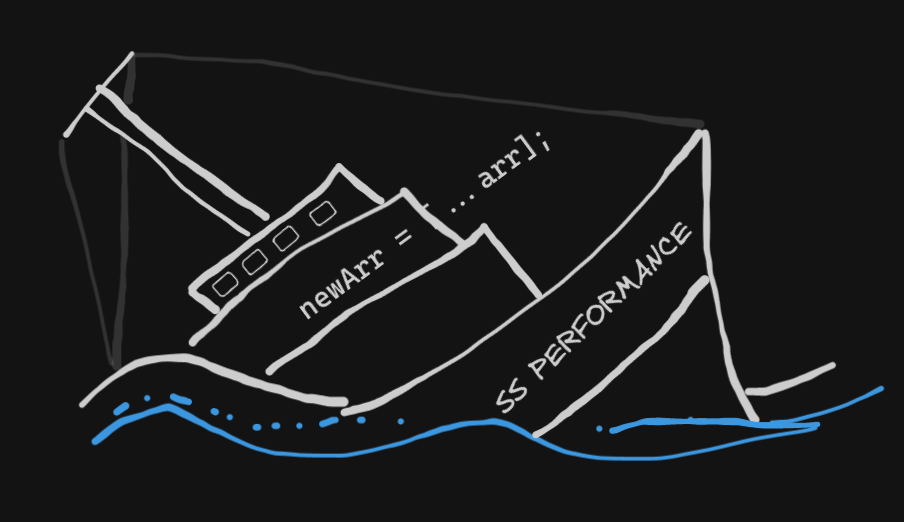 newArr = [ ...arr];
SS PERFORMANCE